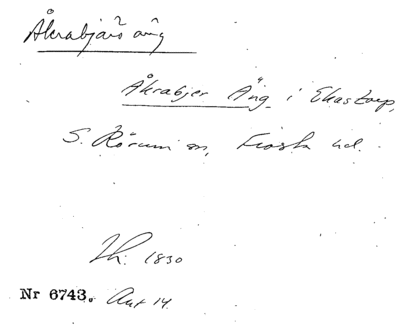 Åkrabjärs äng
Åkrabjer Äng i Ekastorp,
S. Rörum sn, Frosta hd.
Th. 1830
Nr 6743. Akt 14.